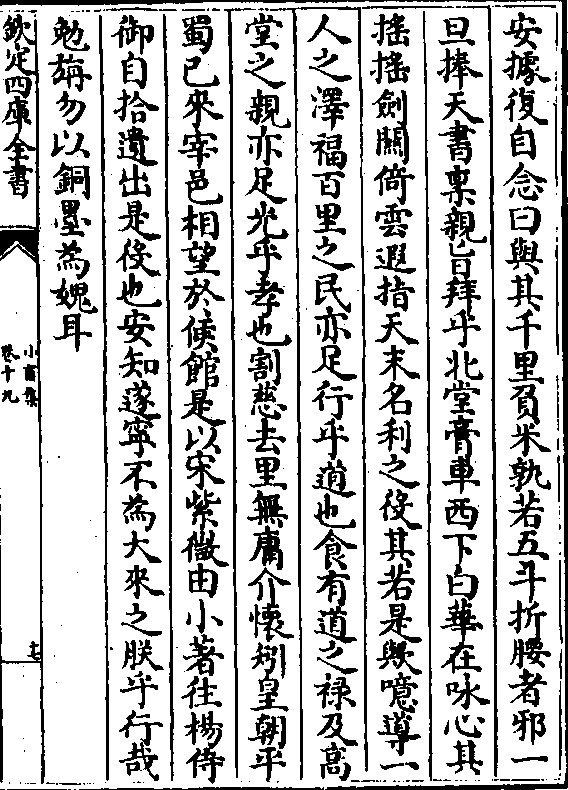 安據復自念曰與其千里負米孰若五斗折腰者邪一
旦捧天書稟親旨拜乎北堂膏車西下白華在咏心其
搖搖劍關倚雲遐指天末名利之役其若是歟噫導一
人之澤福百里之民亦足行乎道也食有道之祿及高
堂之親亦足光乎孝也割慈去里無庸介懷矧皇朝平
蜀已來宰邑相望於候館是以宋紫微由小著往楊侍
御自拾遺出是役也安知遂寧不為大來之朕乎行哉
勉旃勿以銅墨為媿耳
欽定四庫全書
小畜集
卷十九